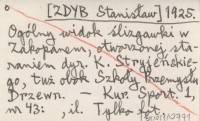 [ZDYB Stanisław] 1925.
Ogólny widok ślizgawki w
Zakopanem, otworzonej sta-
raniem dyr. K. Stryjeńskie-
go, tuż obok Szkoły Przemysłu
Drzewn. – Kur. Sport. 1,
nr 43: , il. Tylko fot.